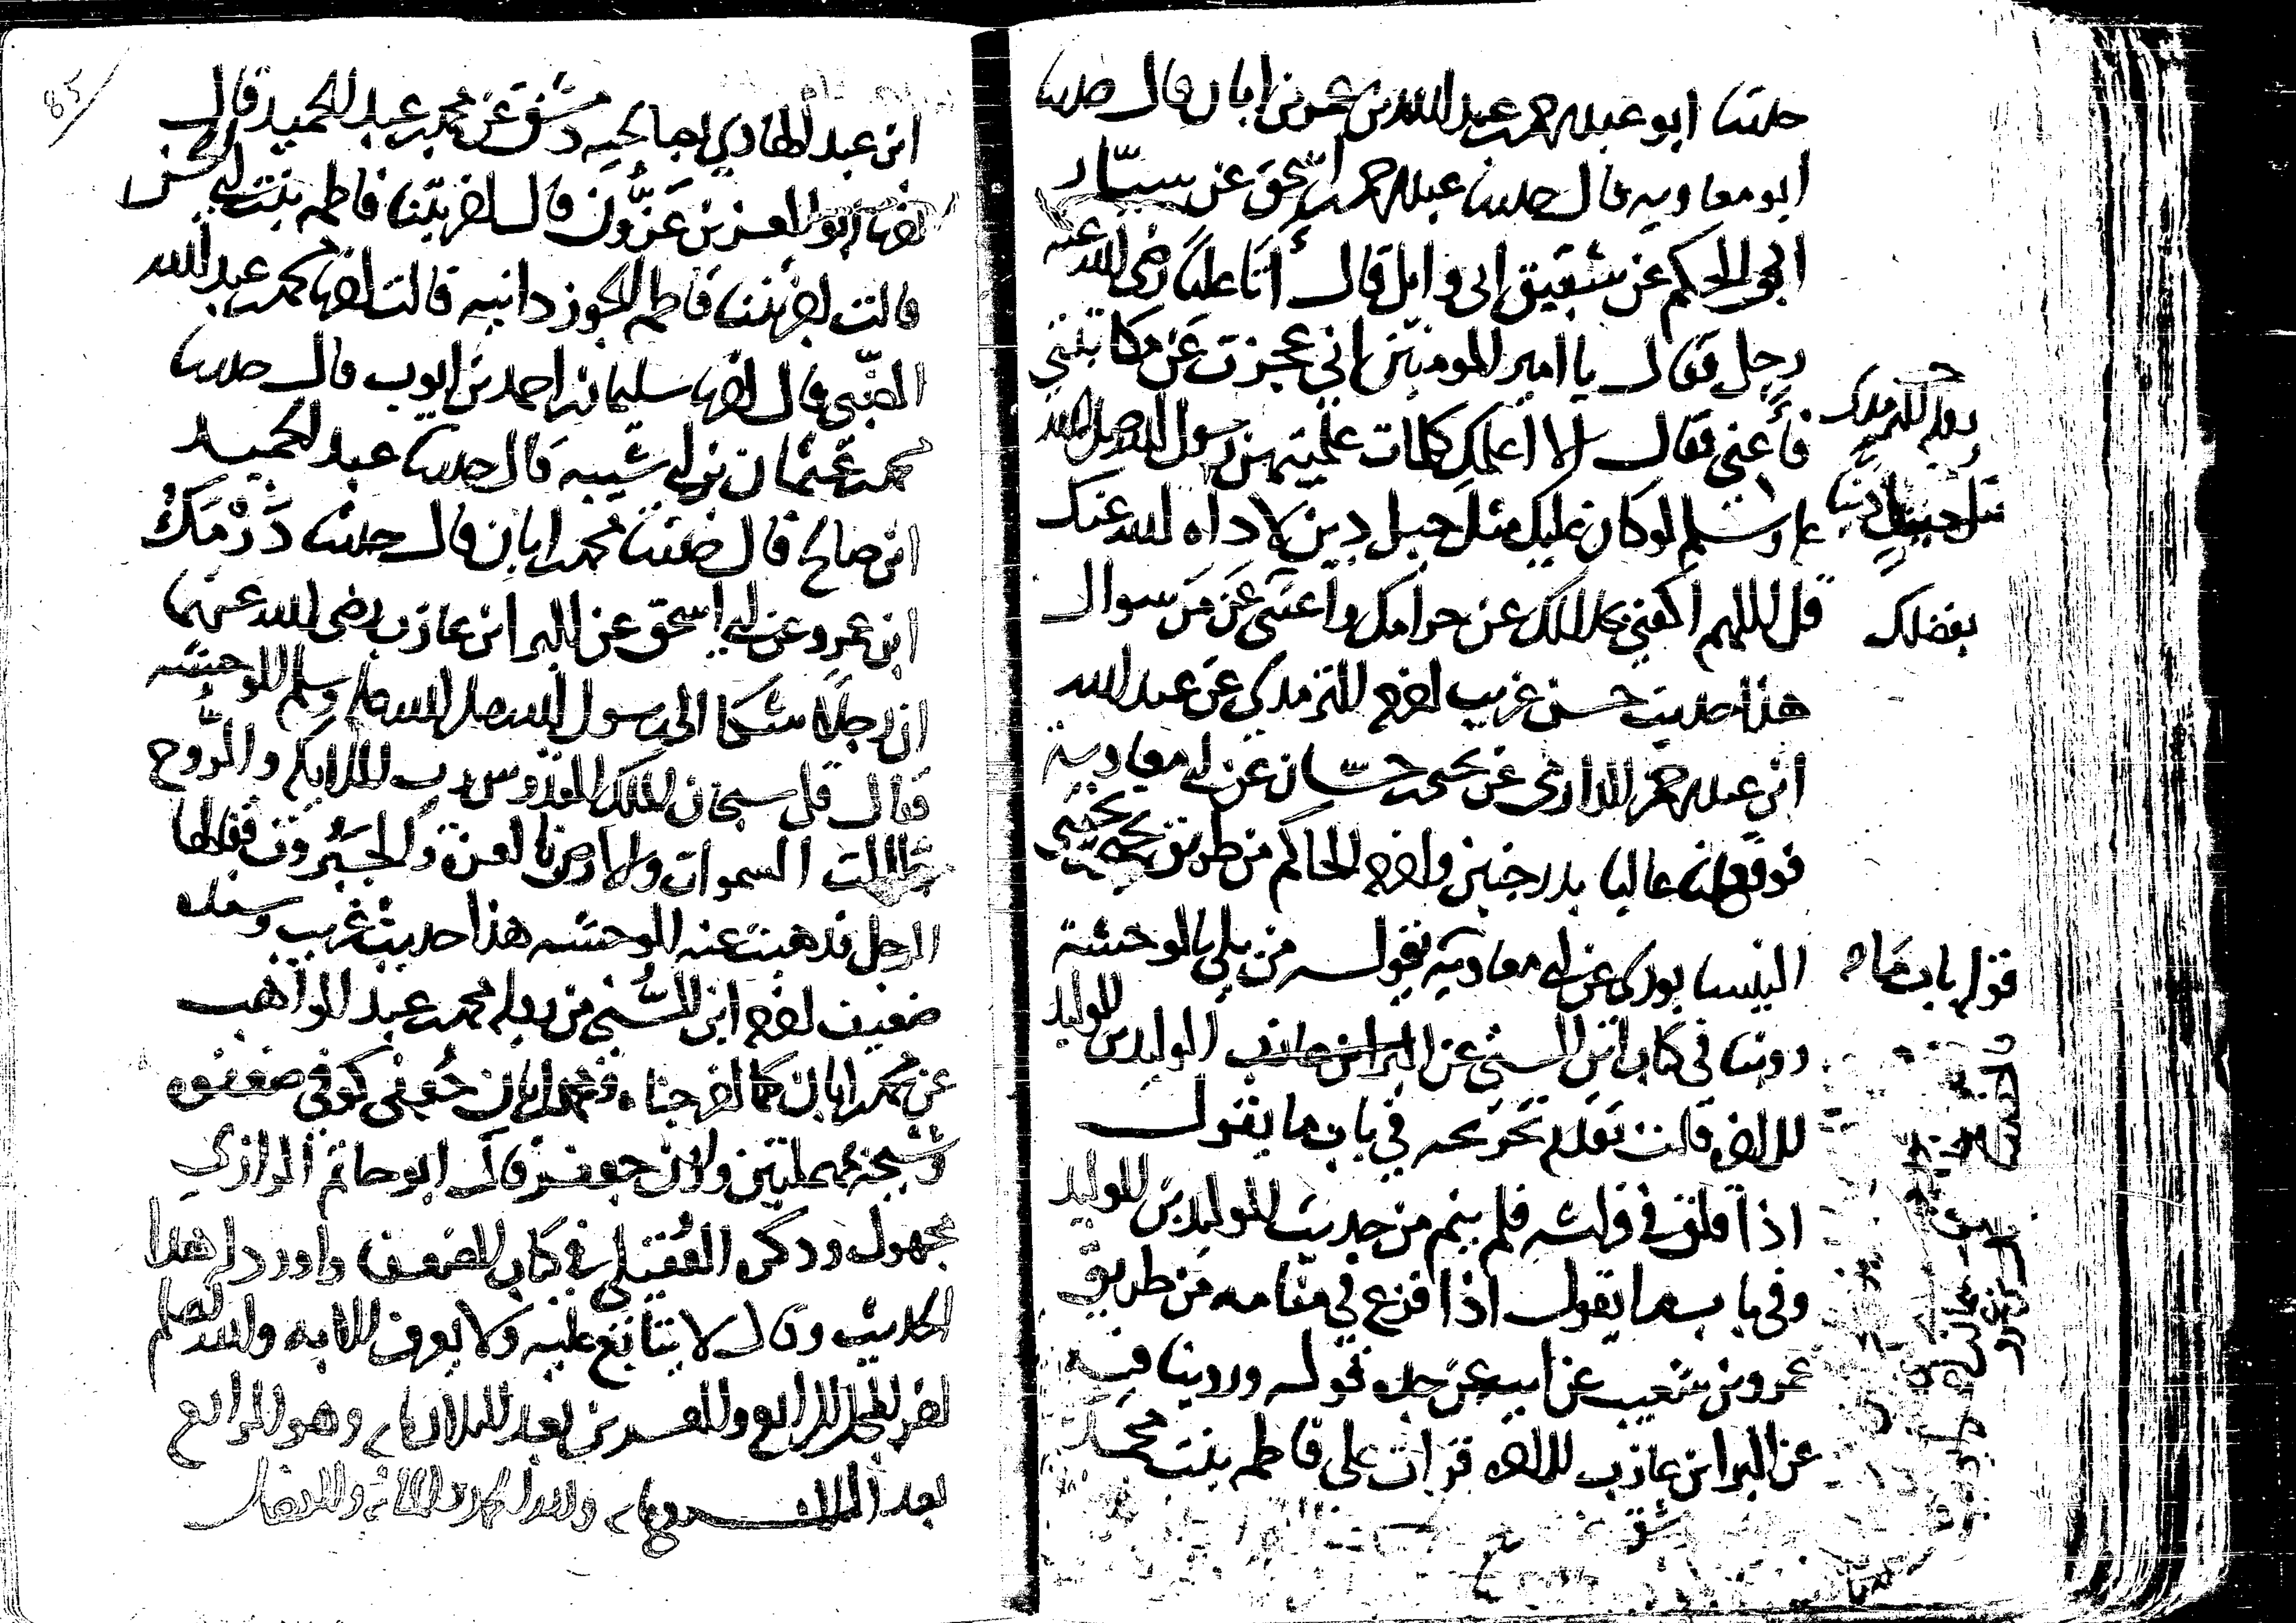 حدثنا ابو عبد الرحمن عبد الله بن عمر بن ابان قال حدثنا
ابو معاوية قال حدثنا عبد الرحمن بن اسحق عن سيّار
ابي الحكم عن شقيق ابي وايل قال أتا عليًا رضي الله عنه
رجل فقال يا امير المومنين اني عجزت عن مكاتبتي
فأعني فقال الا اعلمك كلمات علمنيهن رسول الله صلى الله
عليه وسلم لو كان عليك مثل جبل دين لاداه الله عنك
قل اللهم اكفني بحلالك عن حرامك واغنني عن من سواك
بفضلك
هذا حديث حسن غريب اخرجه الترمذي عن عبد الله
ابن عبد الرحمن الدارمي عن يحيى بن حسان عن ابي معاوية
فوقع لنا عاليا بدرجتين واخرجه الحاكم من طريق يحيى بن يحيى
النيسابوري عن ابي معاوية قوله من بلي بالوحشة
قوله باب ما
روينا في كتاب ابن السني عن الوليد بن الوليد
الى اخره قلت تقدم تخريجه في باب ما يقول
اذا قلق في فراشه فلم ينم من حديث الوليد بن الوليد
وفي باب ما يقول اذا فزع في منامه من طريق
عمرو بن شعيب عن ابيه عن جده قوله وروينا فيه
عن البرا بن عازب الى اخره قرات على فاطمة بنت محمد
ابن عبد الهادي بصالحية دمشق عن محمد بن عبد الحميد قال
اخبرنا ابو العز بن عزّون قال اخبرتنا فاطمة بنت ابي الحسن
قالت اخبرتنا فاطمة الجوزدانية قالت اخبرنا محمد بن عبد الله
الضبي قال اخبرنا سليمان بن احمد بن ايوب قال حدثنا
محمد بن عثمان بن ابي شيبة قال حدثنا عبد الحميد
ابن صالح قال حدثنا محمد بن ابان قال حدثنا دَرْمَكُ
ابن عمرو عن ابي اسحق عن البرا بن عازب رضي الله عنهما
ان رجلا شكا الى رسول الله صلى الله عليه وسلم الوحشة
فقال قل سبحان الملك القدوس رب الملايكة والروح
جللت السموات والارض بالعزة والجبروت فقالها
الرجل فذهبت عنه الوحشة هذا حديث غريب وسنده
ضعيف اخرجه ابن السُّني من رواية محمد بن عبد الواهب
عن محمد بن ابان كما اخرجناه ومحمد بن ابان جُعفي كوفي ضعفوه
وشيخه بمهملتين وزن جعفر قال ابو حاتم الرازي
مجهول وذكره العُقيلي في كتاب الضعفا واورد له هذا
الحديث وقال لا يتابع عليه ولا يعرف الا به والله اعلم
اخر المجلس الرابع والعشرين بعد الثلاثماية وهو الرابع